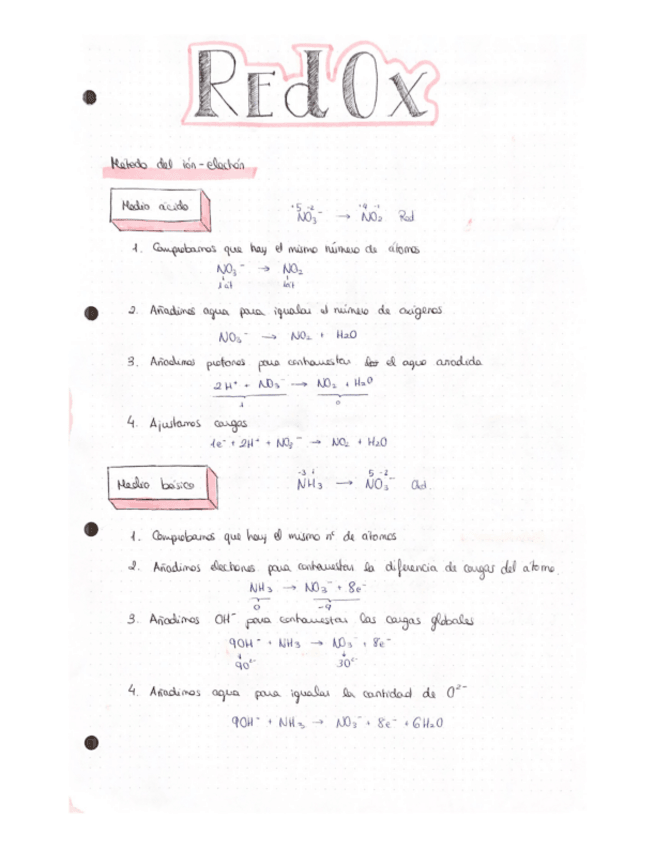 RedOx
Metodo del ión-electrón
Medio ácido
+5 -2 +4 -2
NO₃⁻ → NO₂ Red
1. Comprobamos que hay el mismo número de átomos
NO₃⁻ → NO₂
1at 1at
2. Añadimos agua para igualar el número de oxígenos
NO₃⁻ → NO₂ + H₂O
3. Añadimos protones para contrarrestar el agua añadida
2H⁺ + NO₃⁻ → NO₂ + H₂O
1 0
4. Ajustamos cargas
1e⁻ + 2H⁺ + NO₃⁻ → NO₂ + H₂O
Medio básico
-3 + 5 -2
NH₃ → NO₃⁻ Oxd.
1. Comprobamos que hay el mismo nº de átomos
2. Añadimos electrones para contrarrestar la diferencia de cargas del átomo.
NH₃ → NO₃⁻ + 8e⁻
0 -9
3. Añadimos OH⁻ para contrarrestar las cargas globales
9OH⁻ + NH₃ → NO₃⁻ + 8e⁻
4. Añadimos agua para igualar la cantidad de O²⁻
9OH⁻ + NH₃ → NO₃⁻ + 8e⁻ + 6H₂O